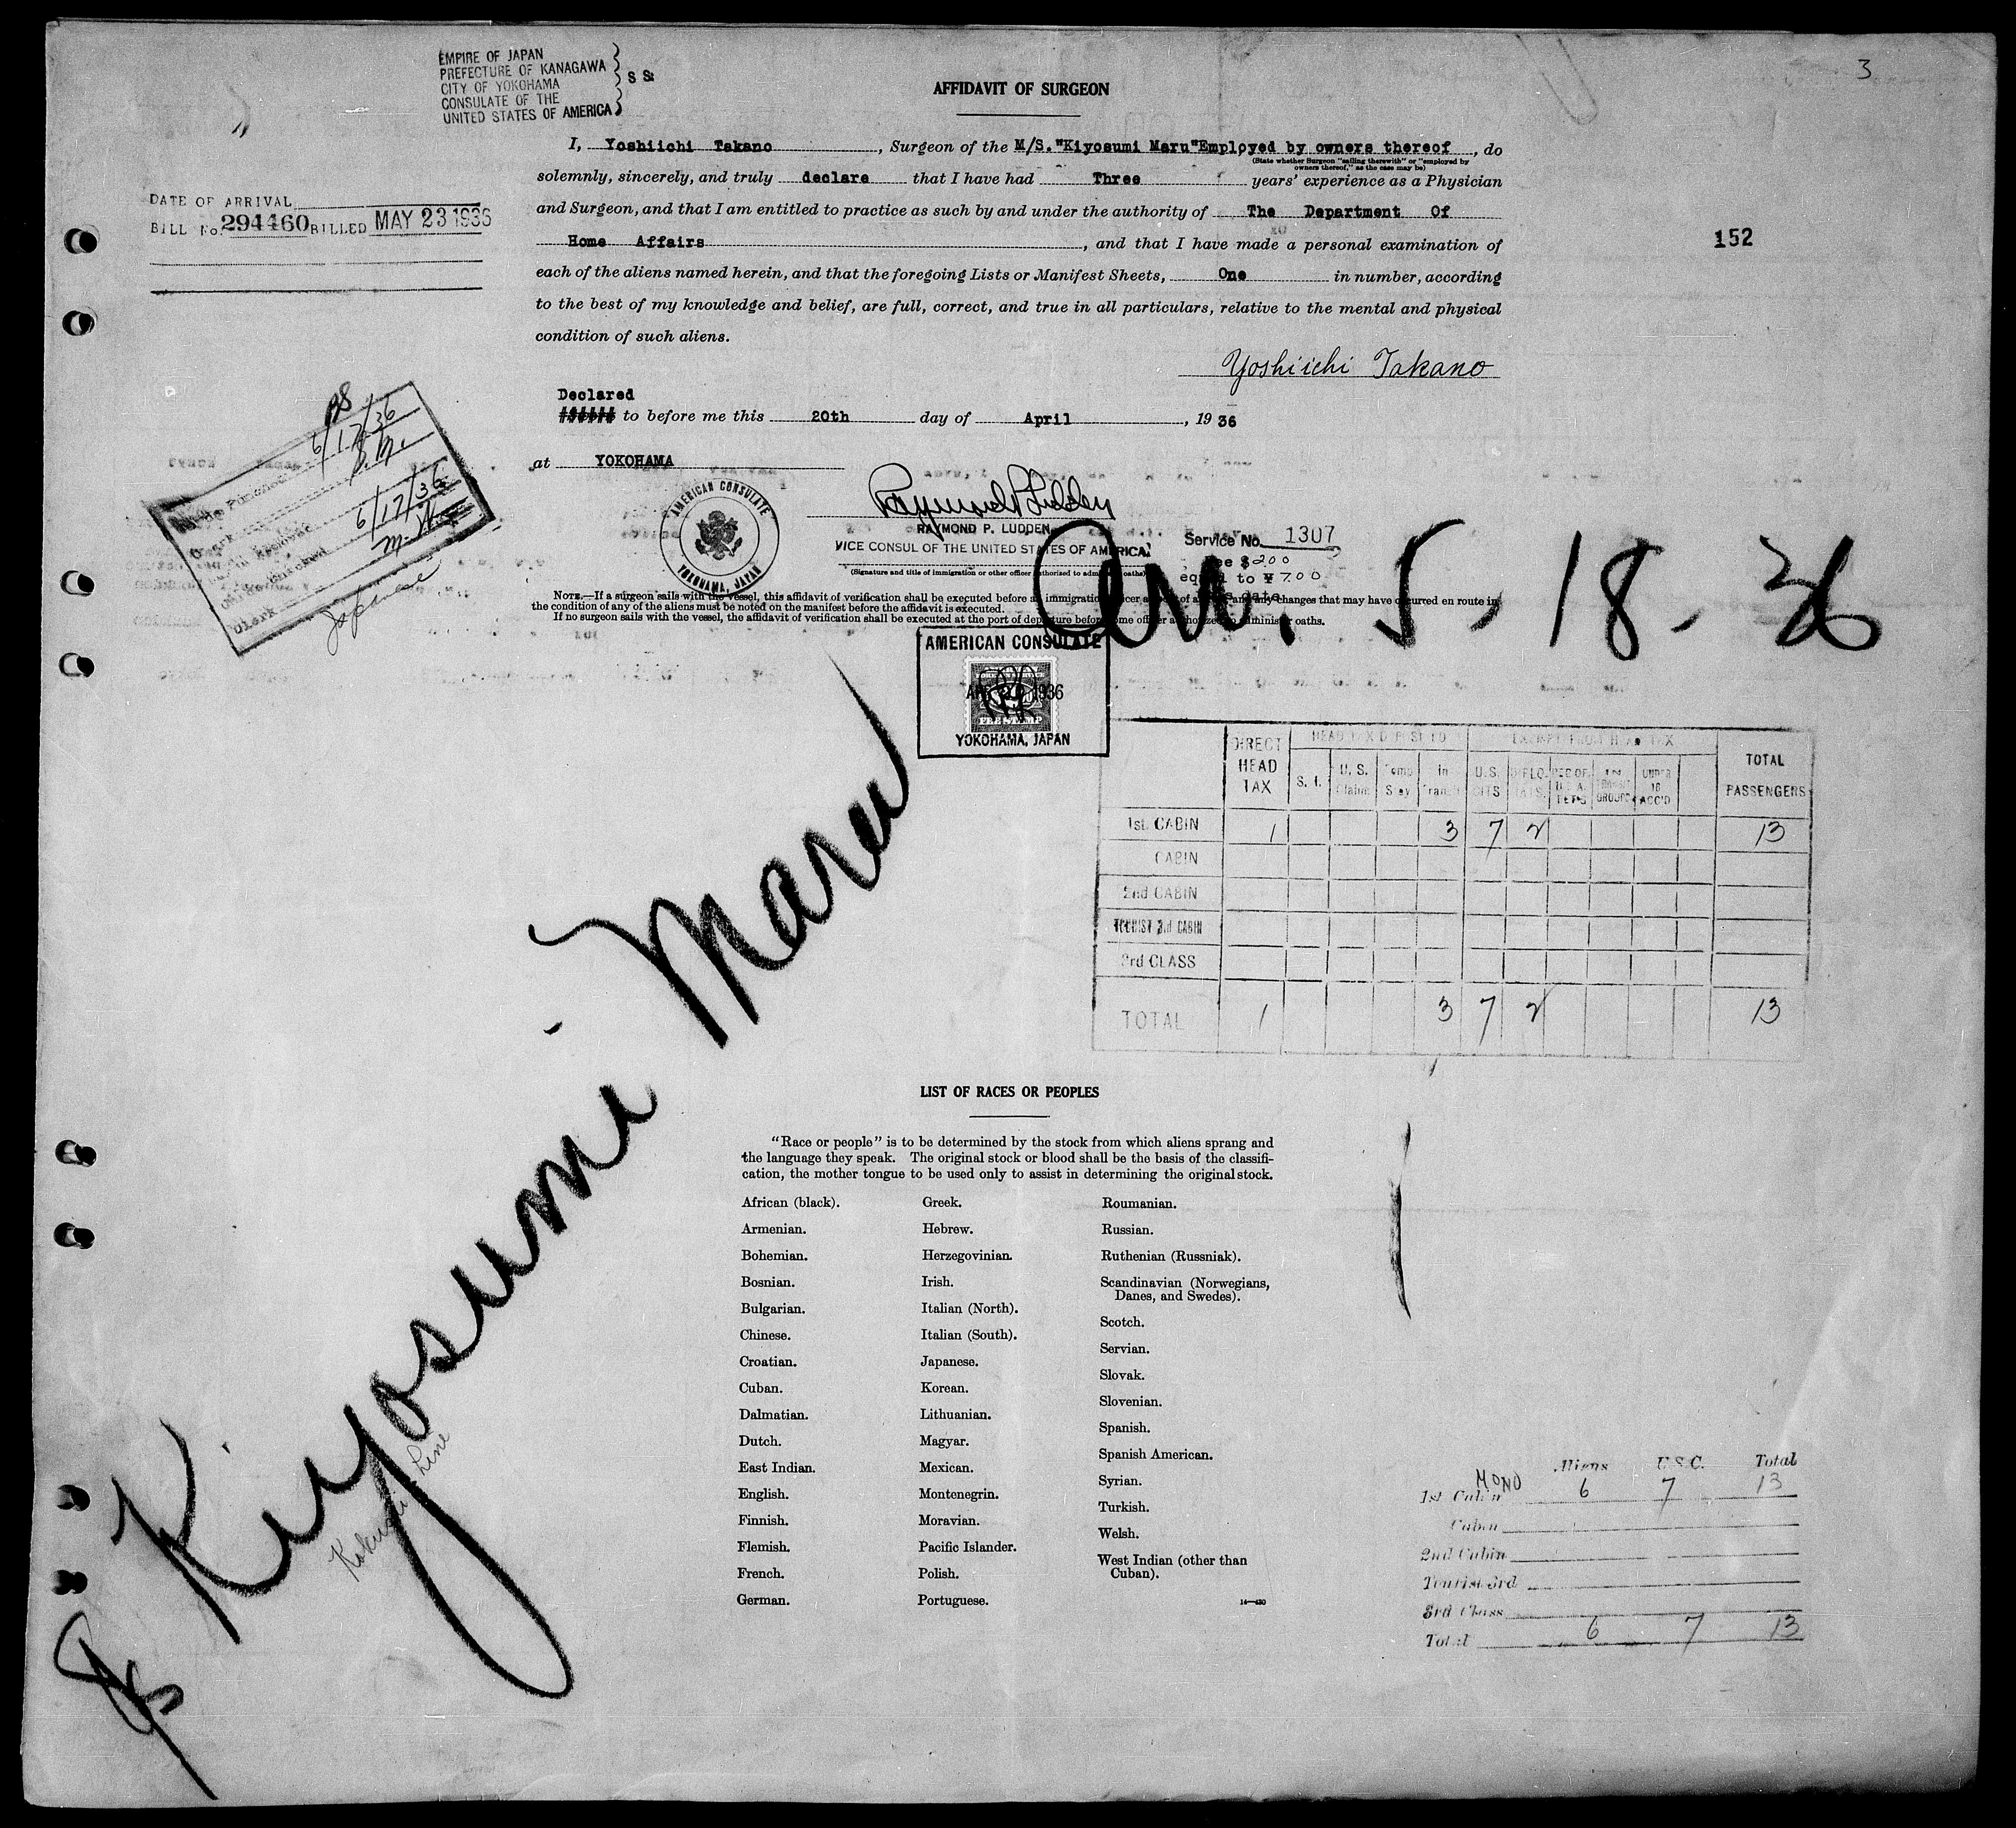 3
EMPIRE OF JAPAN
PREFECTURE OF KANAGAWA
CITY OF YOKOHAMA
CONSULATE OF THE
UNITED STATES OF AMERICA
S S:
AFFIDAVIT OF SURGEON
I, Yoshiichi Takano, Surgeon of the M/S."Kiyosumi Maru"Employed by owners thereof, do
(State whether Surgeon "sailing therewith" or "employed by
owners thereof," as the case may be)
solemnly, sincerely, and truly declare that I have had Three years' experience as a Physician
and Surgeon, and that I am entitled to practice as such by and under the authority of The Department Of
Home Affairs, and that I have made a personal examination of
each of the aliens named herein, and that the foregoing Lists or Manifest Sheets, One in number, according
to the best of my knowledge and belief, are full, correct, and true in all particulars, relative to the mental and physical
condition of such aliens.
DATE OF ARRIVAL
BILL No. 294460 BILLED MAY 23 1936
152
Yoshiichi Takano
Declared
to before me this 20th day of April, 1936
at YOKOHAMA
6/17/36
6/17/36
Clerk
AMERICAN CONSULATE
YOKOHAMA, JAPAN
Raymond P Ludden
RAYMOND P. LUDDEN
VICE CONSUL OF THE UNITED STATES OF AMERICA.
(Signature and title of immigration or other officer authorized to administer oaths)
Service No. 1307
Fee $2.00
equal to ¥ 7.00
NOTE.—If a surgeon sails with the vessel, this affidavit of verification shall be executed before an immigration officer and any changes that may have occurred en route in
the condition of any of the aliens must be noted on the manifest before the affidavit is executed.
If no surgeon sails with the vessel, the affidavit of verification shall be executed at the port of departure before some officer authorized to administer oaths.
Arr. 5-18-36
AMERICAN CONSULATE
APR 20 1936
FEE STAMP
YOKOHAMA, JAPAN
DIRECT HEAD TAX
HEAD TAX DEPOSITED
EXEMPT FROM HEAD TAX
TOTAL PASSENGERS
S. I. U. S. Claim Temp Stay In Transit U.S. CITS DIPLOMATS UNDER 16 ACC'D
1st. CABIN 1 3 7 2 13
CABIN
2nd CABIN
TOURIST 3rd CABIN
3rd CLASS
TOTAL 1 3 7 2 13
Kiyosumi Maru
Line
LIST OF RACES OR PEOPLES
"Race or people" is to be determined by the stock from which aliens sprang and
the language they speak. The original stock or blood shall be the basis of the classifi-
cation, the mother tongue to be used only to assist in determining the original stock.
African (black).
Armenian.
Bohemian.
Bosnian.
Bulgarian.
Chinese.
Croatian.
Cuban.
Dalmatian.
Dutch.
East Indian.
English.
Finnish.
Flemish.
French.
German.
Greek.
Hebrew.
Herzegovinian.
Irish.
Italian (North).
Italian (South).
Japanese.
Korean.
Lithuanian.
Magyar.
Mexican.
Montenegrin.
Moravian.
Pacific Islander.
Polish.
Portuguese.
Roumanian.
Russian.
Ruthenian (Russniak).
Scandinavian (Norwegians,
Danes, and Swedes).
Scotch.
Servian.
Slovak.
Slovenian.
Spanish.
Spanish American.
Syrian.
Turkish.
Welsh.
West Indian (other than
Cuban).
14—430
Aliens U.S.C. Total
MONO
1st Cabin 6 7 13
Cabin
2nd Cabin
Tourist 3rd
3rd Class
Total 6 7 13